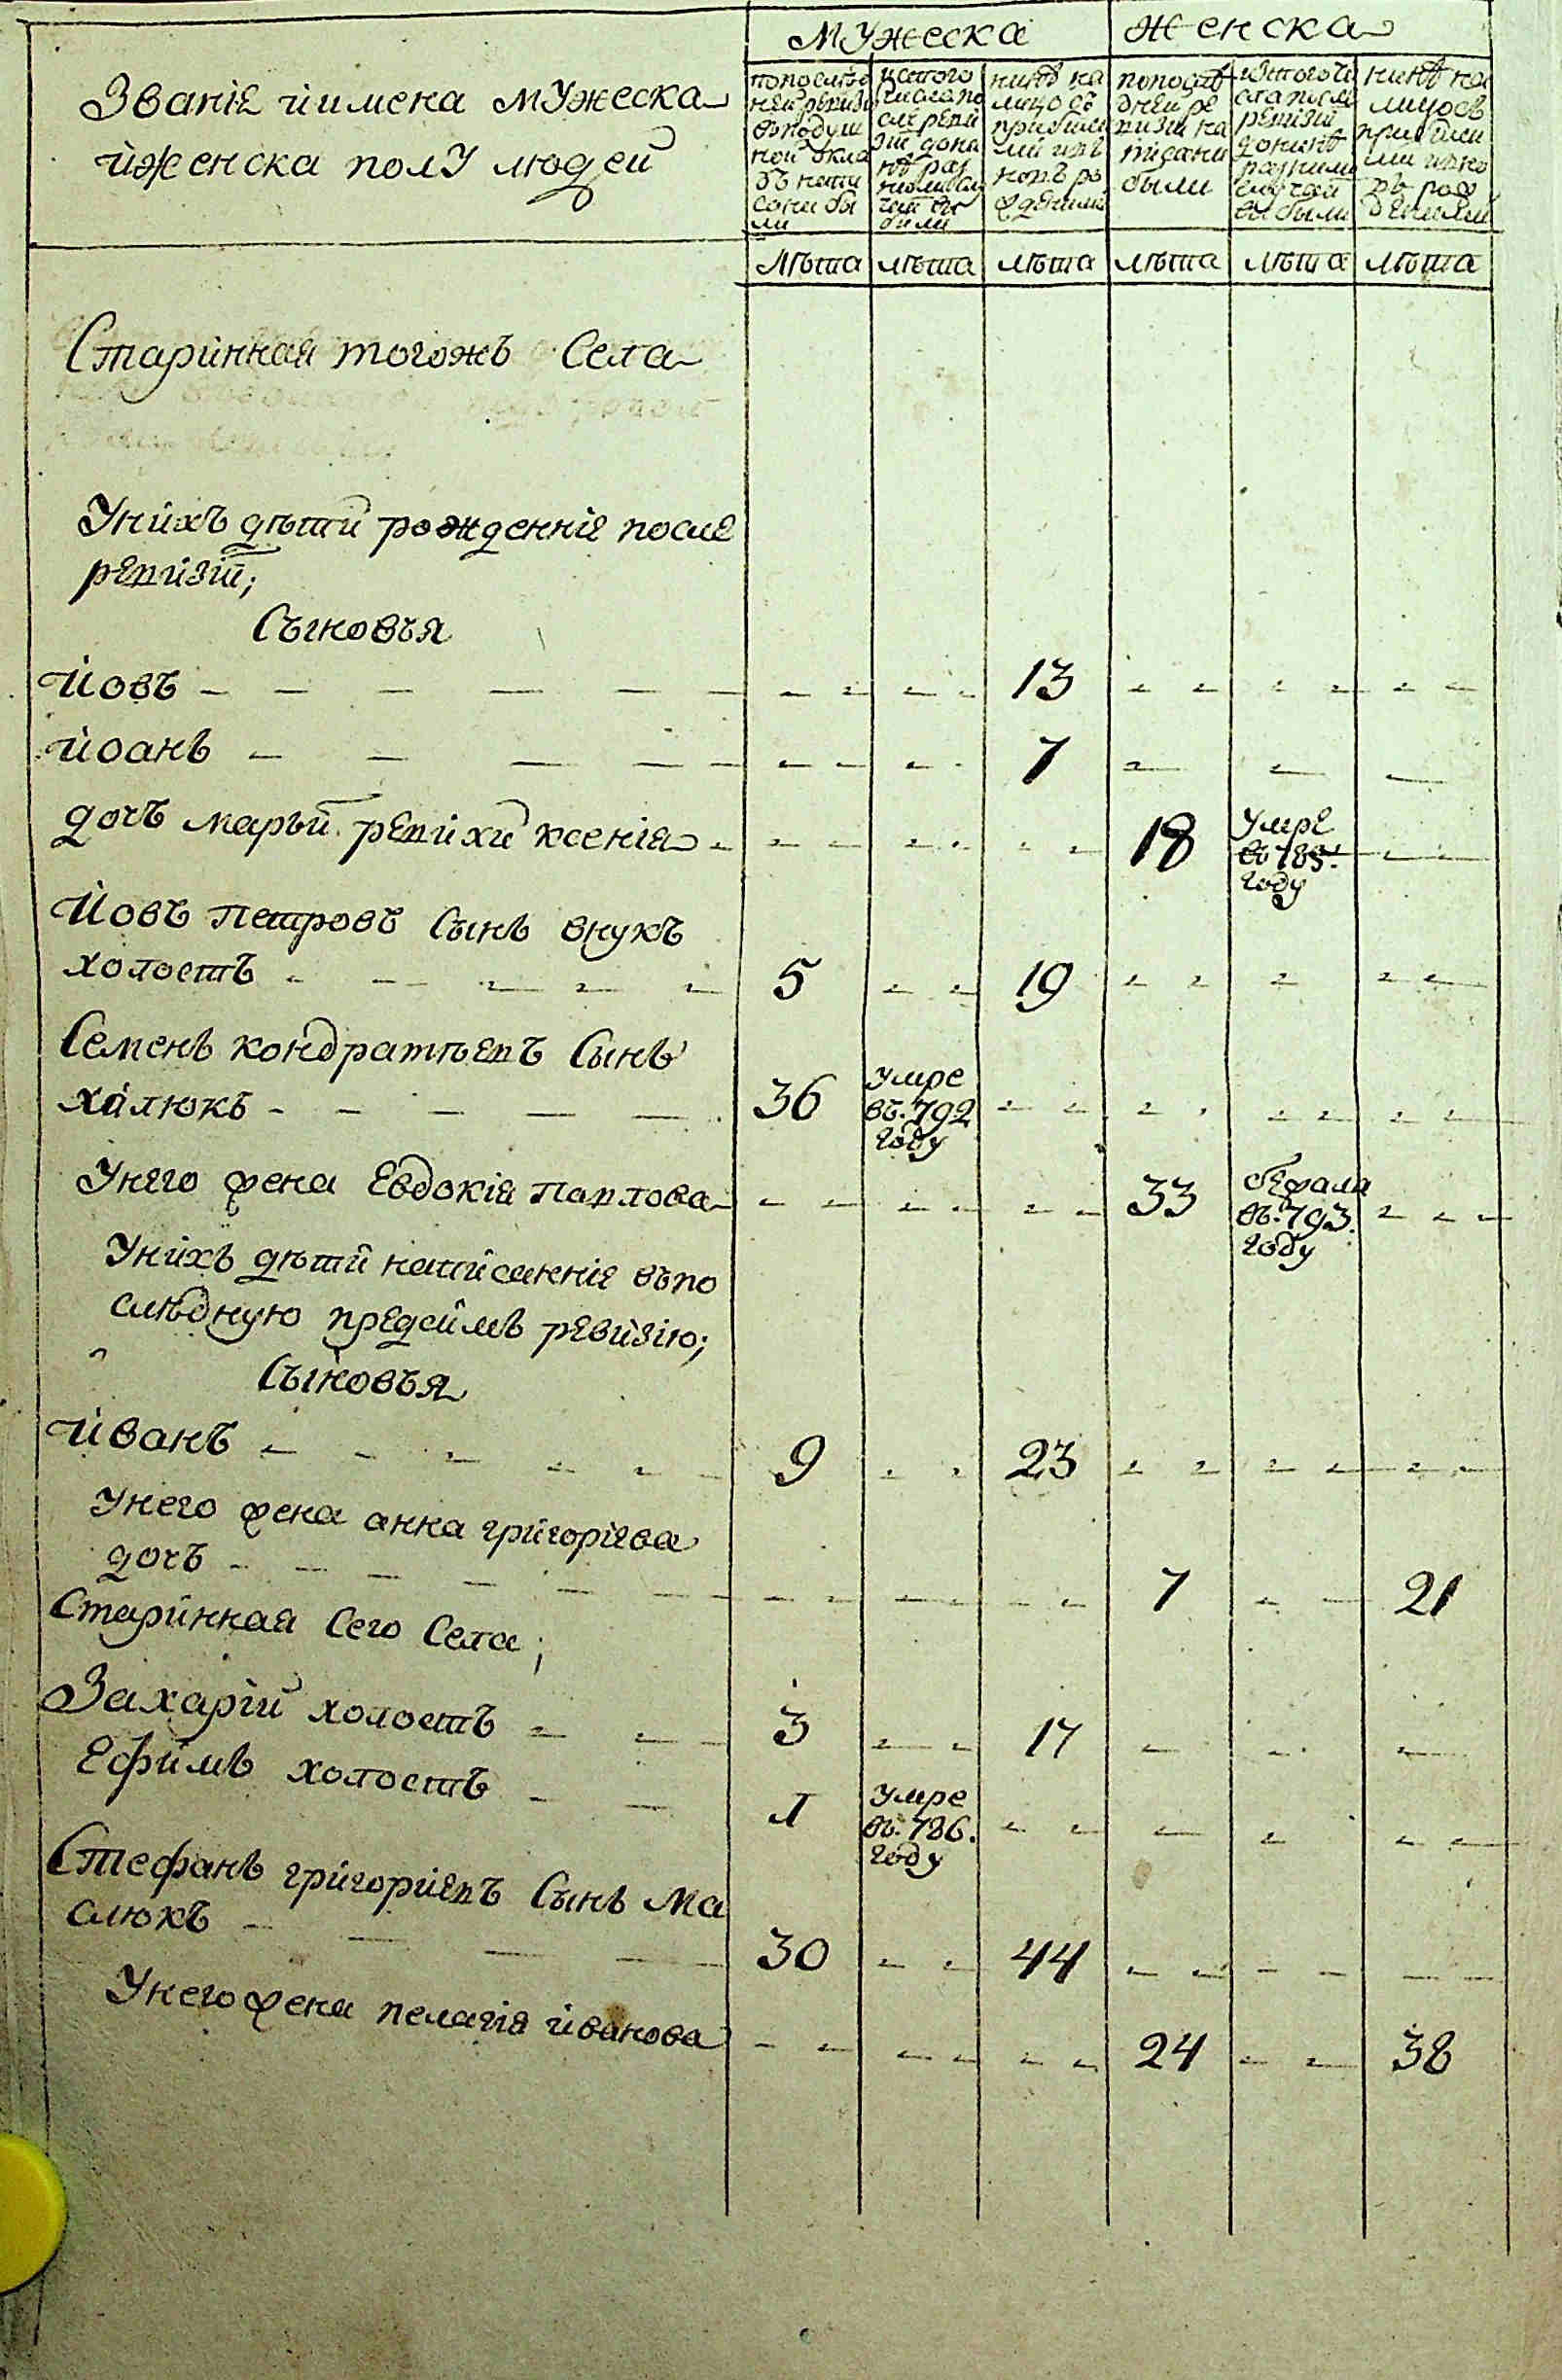 Званіе й имена мужеска
й женска полу людей
мужеска женска
по послѣд
ней ревизи
в подуш
ной окла
дѣ напи
саны бы
ли
изтого
числа по
слѣ реви
зіи доны
нѣ раз
ными слу
чаи вы
были
нынѣ на
лицо съ
прибыли
ми и вно
вь ро
жденими
по послѣ
дней ре
визіи на
писани
были
изтого чи
сла после
ревизіи
донынѣ
разними
случаи
вибыли
нинѣ на
лицо съ
прибили
ми и вно
вь рож
денними
лѣта лѣта лѣта лѣта лѣта лѣта
Старинная тогожъ Села
У нихъ дѣти рожденніе после
ревизіи;
Сыновья
йовъ - - - - - - - - - - 13 - - - - - -
йоанъ - - - - - - - - - 7 - - -
дочъ марьи ревихи ксенія - - - - - - - 18 умре въ 785. году - -
йовъ петровъ Сынъ внукъ
холостъ - - - - - 5 - - 19 - - - - -
Семенъ кондратѣевъ Сынъ
халюкъ - - - - - 36 умре въ. 792 году - - - - - - - -
У него жена Евдокія павлова - - - - - - 33 бежала въ. 793. году - - -
У нихъ дѣти написанніе въ по
слѣдную предсимъ ревизію;
Сыновья
йванъ - - - - - - 9 - - 23 - - - - - -
У него жена анна григоріева
дочъ - - - - - - - - - - - - 7 - - 21
Старинная Сего Села;
Захарій холостъ - - - 3 - - 17 - - -
Ефимъ холостъ - - 1 умре въ. 786. году - - - - - -
Стефанъ григориевъ Сынъ ма
слюкъ - - - - - 30 - - 44 - - - - - -
У него жена пелагія йванова - - - - - - 24 - - 38